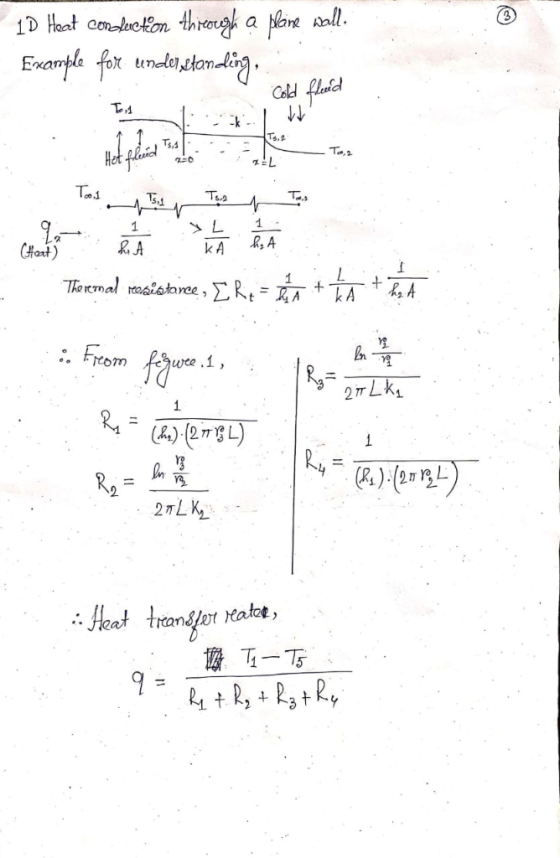 ③
1D Heat conduction through a plane wall.
Example for understanding.
Cold fluid
T∞,1
k
Ts,1
Ts,2
Hot fluid
x=0
x=L
T∞,2
T∞,1 Ts,1 Ts,2 T∞,2
qx
(Heat)
1/h1A L/kA 1/h2A
Thermal resistance, ΣRt = 1/h1A + L/kA + 1/h2A
∴ From figure.1,
R1 = 1/(h2)·(2πr3L)
R2 = ln r3/r2 / 2πLK2
R3 = ln r2/r1 / 2πLk1
R4 = 1/(h1)·(2πr2L)
∴ Heat transfer rate,
q = T1 − T5 / R1 + R2 + R3 + R4